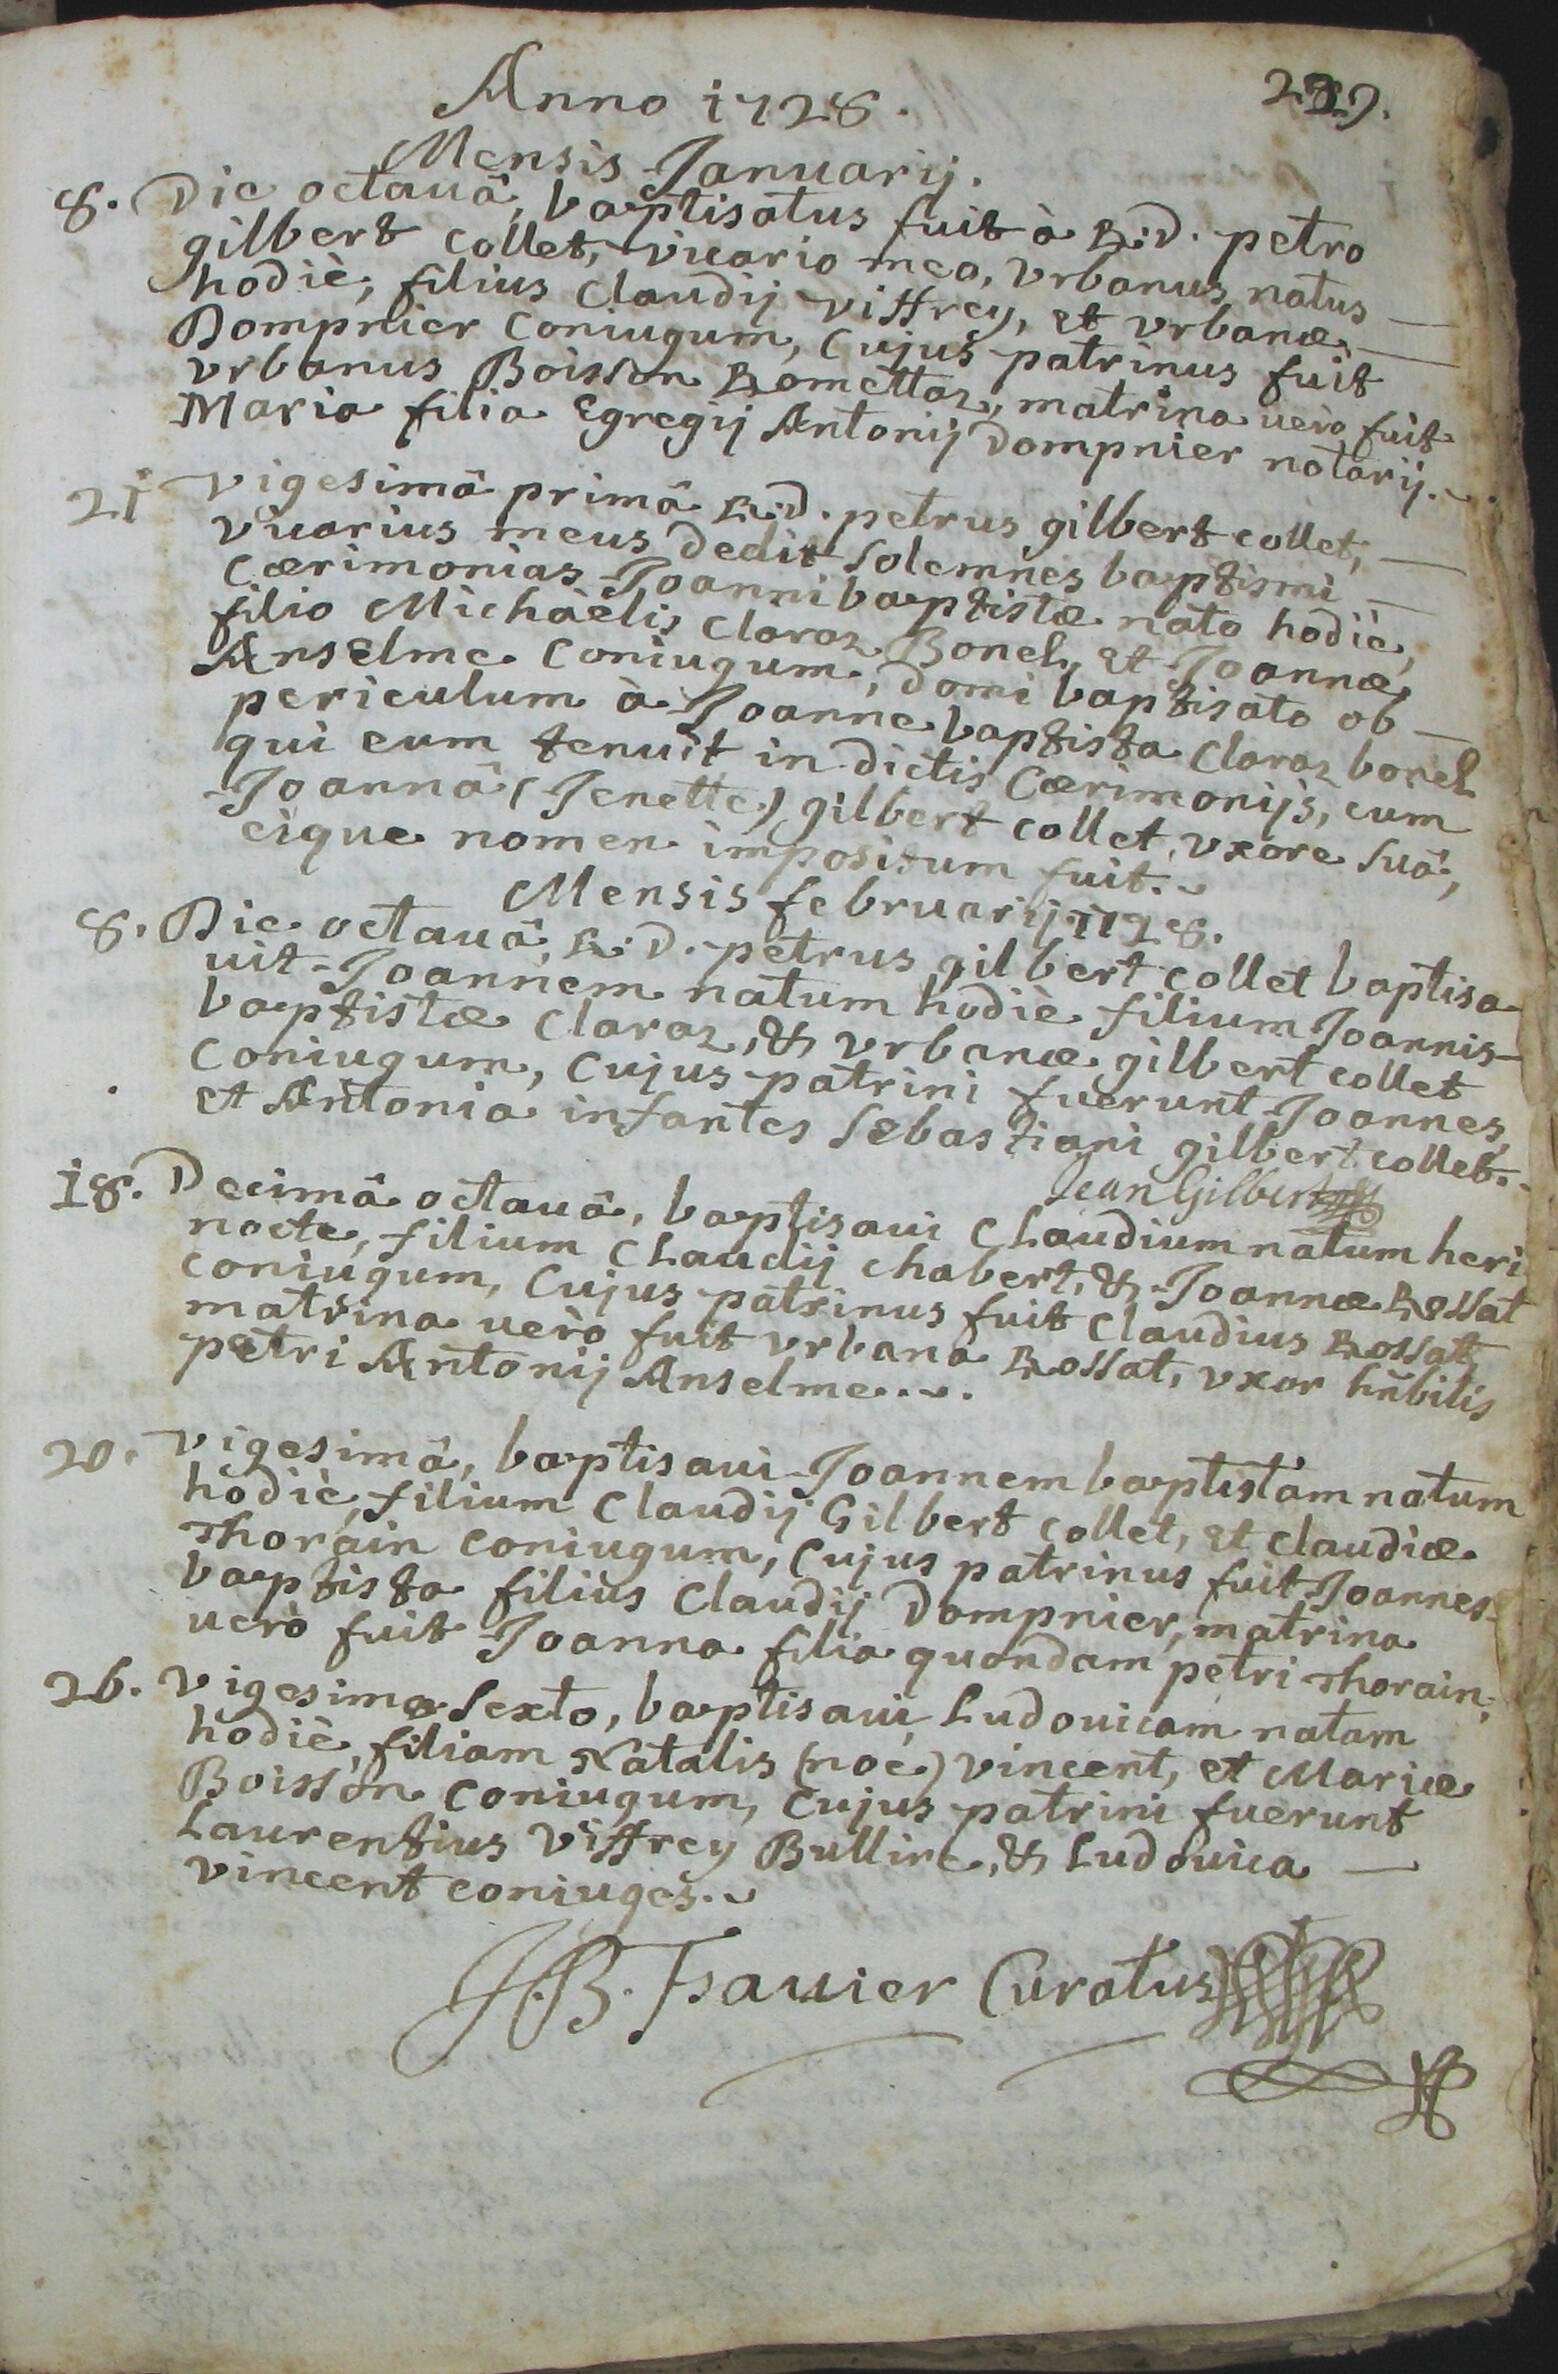 Anno 1728.
Mensis Januarij.
8. Die octauâ, baptisatus fuit à R: D. petro
gilbert collet, vicario meo, vrbanus natus
hodiè, filius Claudij viffrey, et vrbanæ
Dompnier Coniugum, Cujus patrinus fuit
vrbanus Boisson Romettaz, matrina uerò fuit
Maria filia Egregij Antonij Dompnier notarij.
21 vigesimâ primâ R: D. petrus gilbert collet,
vicarius meus dedit solemnes baptismi
Cærimonias Joanni baptistæ nato hodiè,
filio Michaëlis Claraz Bonel, et Joannæ
Anselme Coniugum, domi baptisato ob
periculum à Joanne baptista Claraz bonel
qui eum tenuit in dictis Cærimonijs, cum
Joannâ (Jenette) gilbert collet, vxore suâ,
eique nomen impositum fuit.
Mensis februarij 1728.
8. Die octauâ, R: D. petrus gilbert collet baptisa
uit Joannem natum hodiè filium Joannis
baptistæ Claraz, & vrbanæ gilbert collet
Coniugum, Cujus patrini fuerunt Joannes,
et Antonia infantes Sebastiani gilbert collet.
Jean Gilbert
18. Decimâ octauâ, baptisaui Claudium natum heri
nocte, filium Claudij Chabert, & Joannæ Rossat
Coniugum, Cujus patrinus fuit Claudius Rossat,
matrina uerò fuit vrbana Rossat, vxor hnbilis
petri Antonij Anselme.
20. vigesimâ, baptisaui Joannem baptistam natum
hodiè, filium Claudij Gilbert collet, et claudiæ
Thorain coniugum, Cujus patrinus fuit Joannes
baptista filius Claudij Dompnier, matrina
uerò fuit Joanna filia quondam petri Thorain.
26. Vigesimo sexto, baptisaui Ludouicam natam
hodiè, filiam Natalis (noé) vincent, et Mariæ
Boisson Coniugum, Cujus patrini fuerunt
Laurentius Viffrey Bullire, & Ludouica
vincent coniuges.
J. B. Travier Curatus